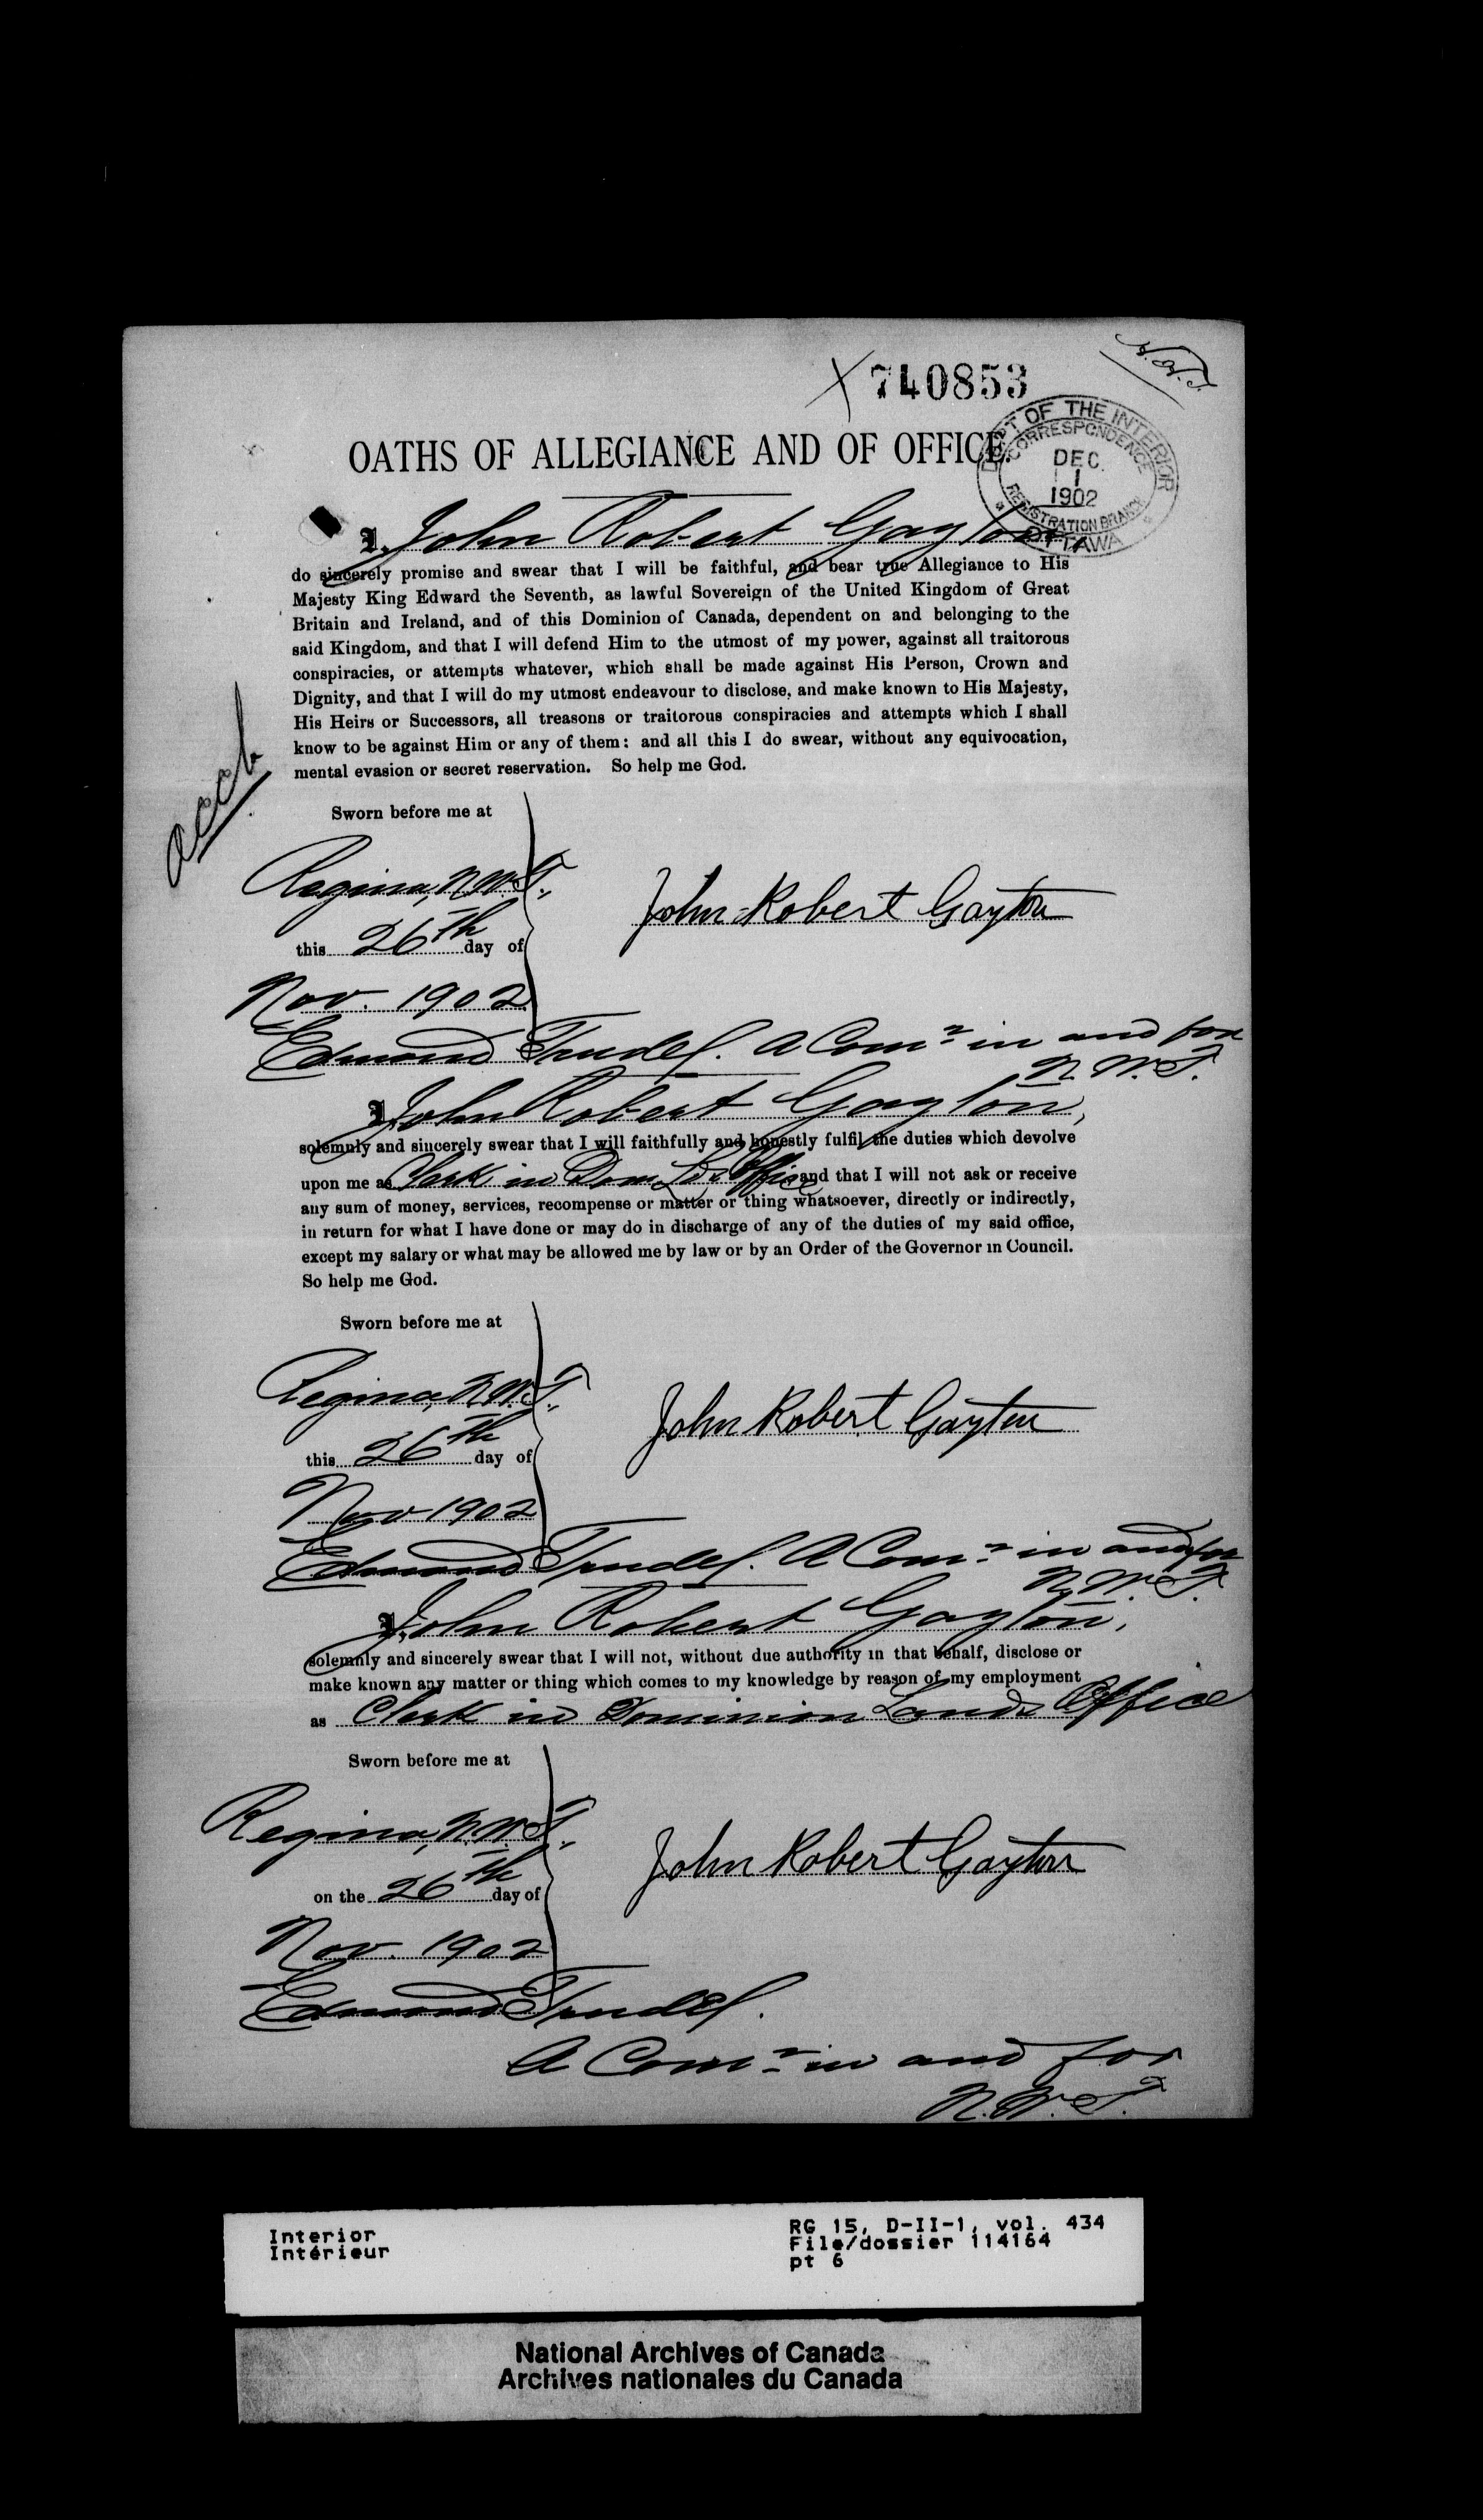 740853
DEPT OF THE INTERIOR
CORRESPONDENCE
DEC.
1
1902
REGISTRATION BRANCH
OTTAWA
OATHS OF ALLEGIANCE AND OF OFFICE.
I, John Robert Gayton,
do sincerely promise and swear that I will be faithful, and bear true Allegiance to His
Majesty King Edward the Seventh, as lawful Sovereign of the United Kingdom of Great
Britain and Ireland, and of this Dominion of Canada, dependent on and belonging to the
said Kingdom, and that I will defend Him to the utmost of my power, against all traitorous
conspiracies, or attempts whatever, which shall be made against His Person, Crown and
Dignity, and that I will do my utmost endeavour to disclose, and make known to His Majesty,
His Heirs or Successors, all treasons or traitorous conspiracies and attempts which I shall
know to be against Him or any of them: and all this I do swear, without any equivocation,
mental evasion or secret reservation. So help me God.
Sworn before me at
Regina, N.W.T.,
John Robert Gayton
this 26th day of
Nov. 1902
Edmond Trudel. A Comr in and for
N.W.T.
I, John Robert Gayton,
solemnly and sincerely swear that I will faithfully and honestly fulfil the duties which devolve
upon me as Clerk in Dom Lds Office and that I will not ask or receive
any sum of money, services, recompense or matter or thing whatsoever, directly or indirectly,
in return for what I have done or may do in discharge of any of the duties of my said office,
except my salary or what may be allowed me by law or by an Order of the Governor in Council.
So help me God.
Sworn before me at
Regina, N.W.T.,
John Robert Gayton
this 26th day of
Nov 1902
Edmond Trudel. A Comr in and for
N.W.T.
I, John Robert Gayton,
solemnly and sincerely swear that I will not, without due authority in that behalf, disclose or
make known any matter or thing which comes to my knowledge by reason of my employment
as Clerk in Dominion Lands Office
Sworn before me at
Regina, N.W.T.
John Robert Gayton
on the 26th day of
Nov. 1902
Edmond Trudel.
A Comr in and for
N.W.T.
Interior
Intérieur
RG 15, D-II-1, vol. 434
File/dossier 114164
pt 6
National Archives of Canada
Archives nationales du Canada